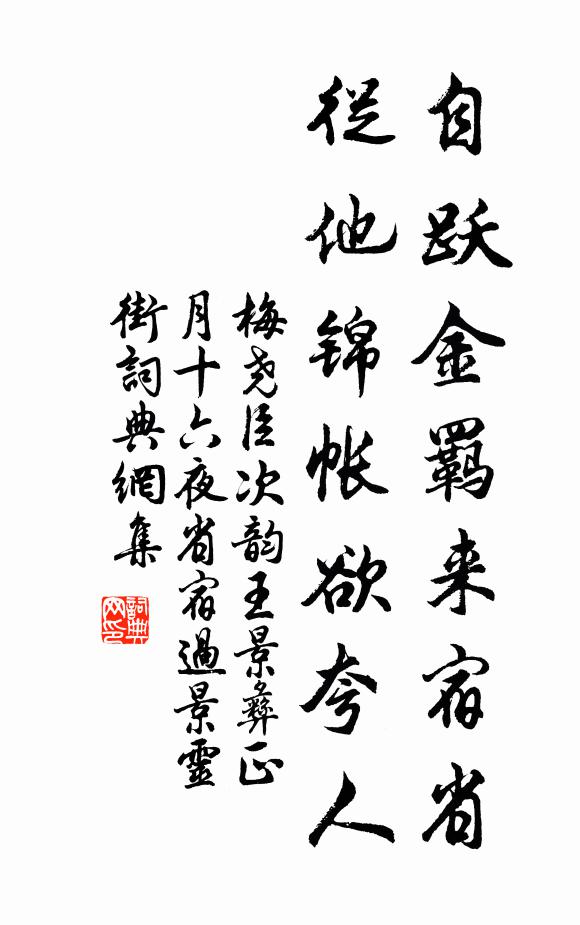 自跃金羁来宿省
從他锦帐欲夸人
梅尧臣次韵王景彝正
月十六夜省宿過景靈
街詞典網集
詞典
网印